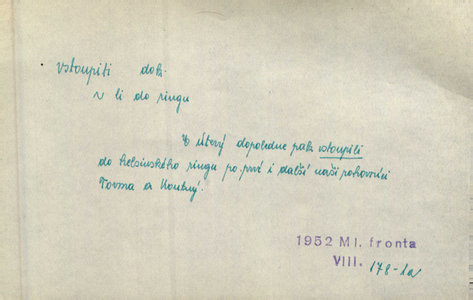 vstoupiti dok.
v li do ringu
V úterý dopoledne pak vstoupili
do helsinského ringu po prvé i další naši rohovníci
Torma a Koutný.
1952 Ml. fronta
VIII. 178-1a